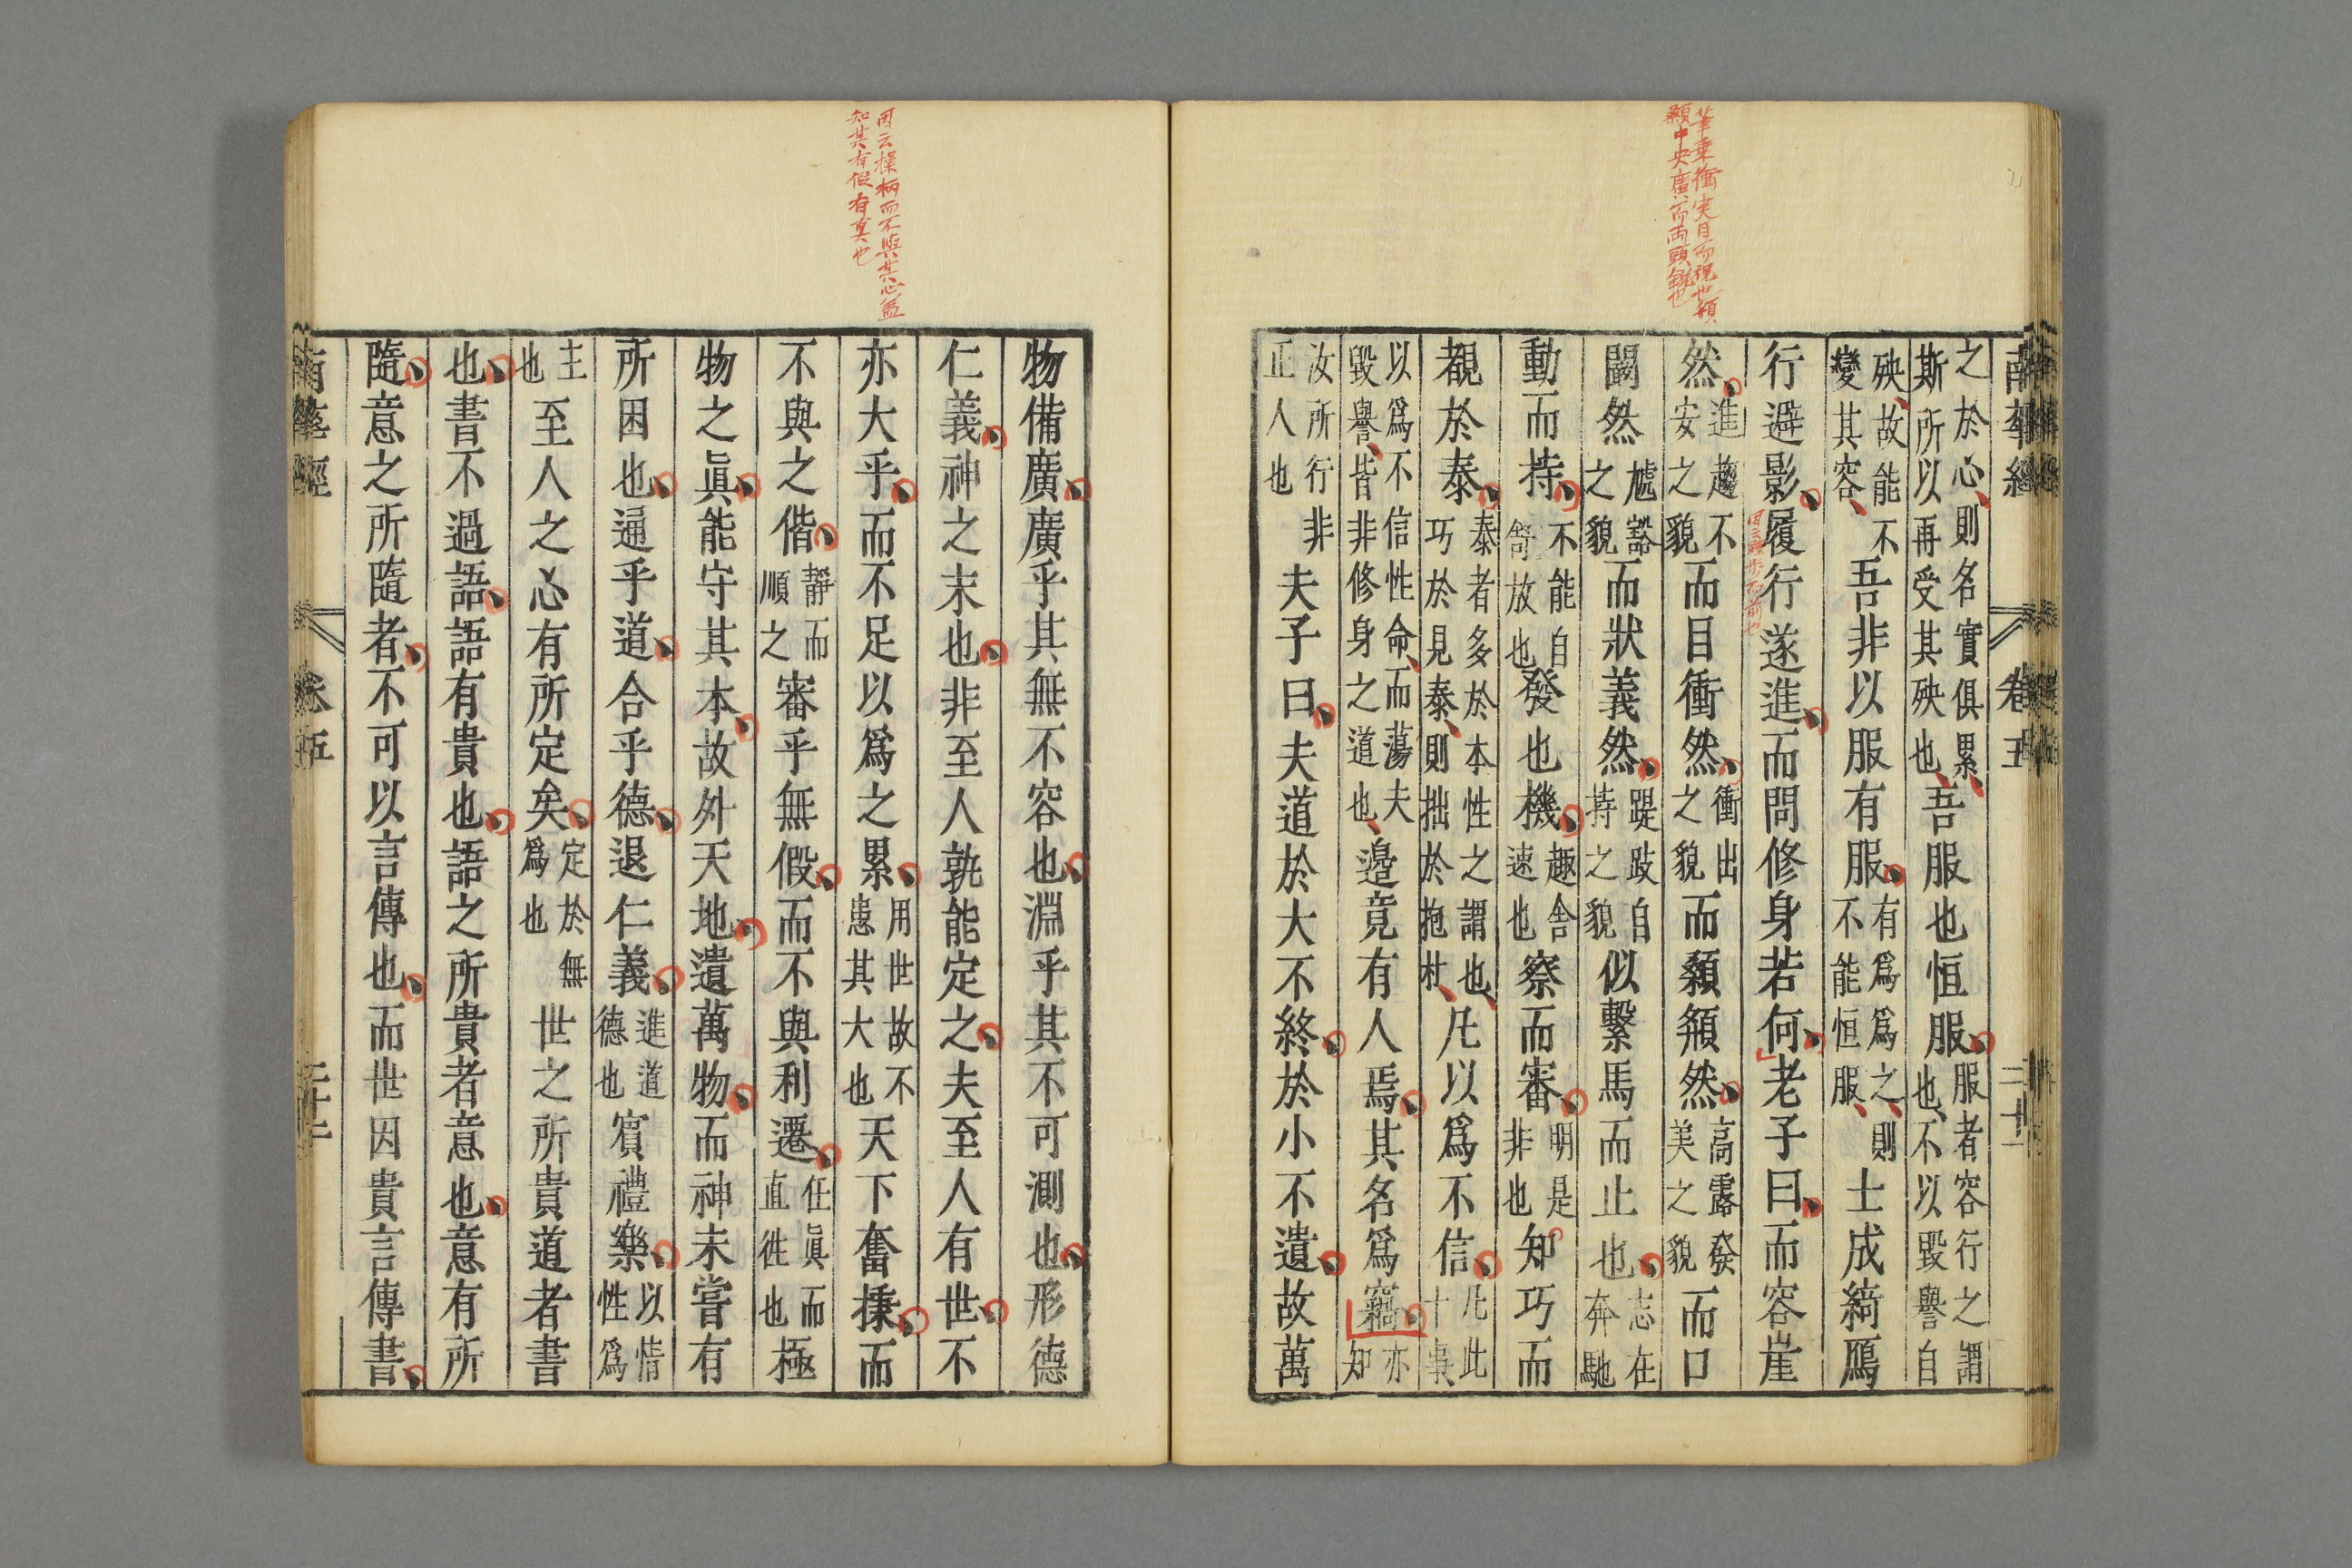 南華經 卷五 二十一
之於心則名實俱累斯所以再受其殃也吾服也恒服服者容行之謂也不以毀譽自
殃故能不變其容吾非以服有服有爲爲之則不能恒服士成綺鴈
行避影履行遂進而問修身若何老子曰而容崖
然進趨不安之貌而目衝然衝出之貌而顙頯然高露發美之貌而口
闞然虓豁之貌而狀義然踶跂自持之貌似繫馬而止也志在奔馳
動而持不能自舒放也發也機趣舍速也察而審明是非也知巧而
覩於泰泰者多於本性之謂也巧於見泰則拙於抱朴凡以爲不信凡此十事
以爲不信性命而蕩夫毀譽皆非修身之道也邉竟有人焉其名爲竊亦知
汝所行非正人也夫子曰夫道於大不終於小不遺故萬
物備廣廣乎其無不容也淵乎其不可測也形德
仁義神之末也非至人孰能定之夫至人有世不
亦大乎而不足以爲之累用世故不患其大也天下奮棅而
不與之偕靜而順之審乎無假而不與利遷任眞而直徃也極
物之眞能守其本故外天地遺萬物而神未嘗有
所困也通乎道合乎德退仁義進道德也賓禮樂以情性爲
主也至人之心有所定矣定於無爲也世之所貴道者書
也書不過語語有貴也語之所貴者意也意有所
隨意之所隨者不可以言傳也而世因貴言傳書
南華經 卷五
筆乗衝突目而視也頯
顙中央廣而兩頭銳也
因云操柄而不與其心蓋
知其有假有真也